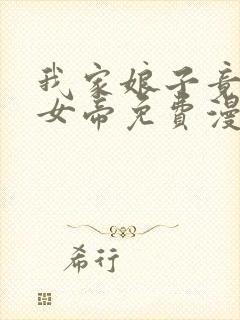 我家娘子竟
女帝免费漫
希行